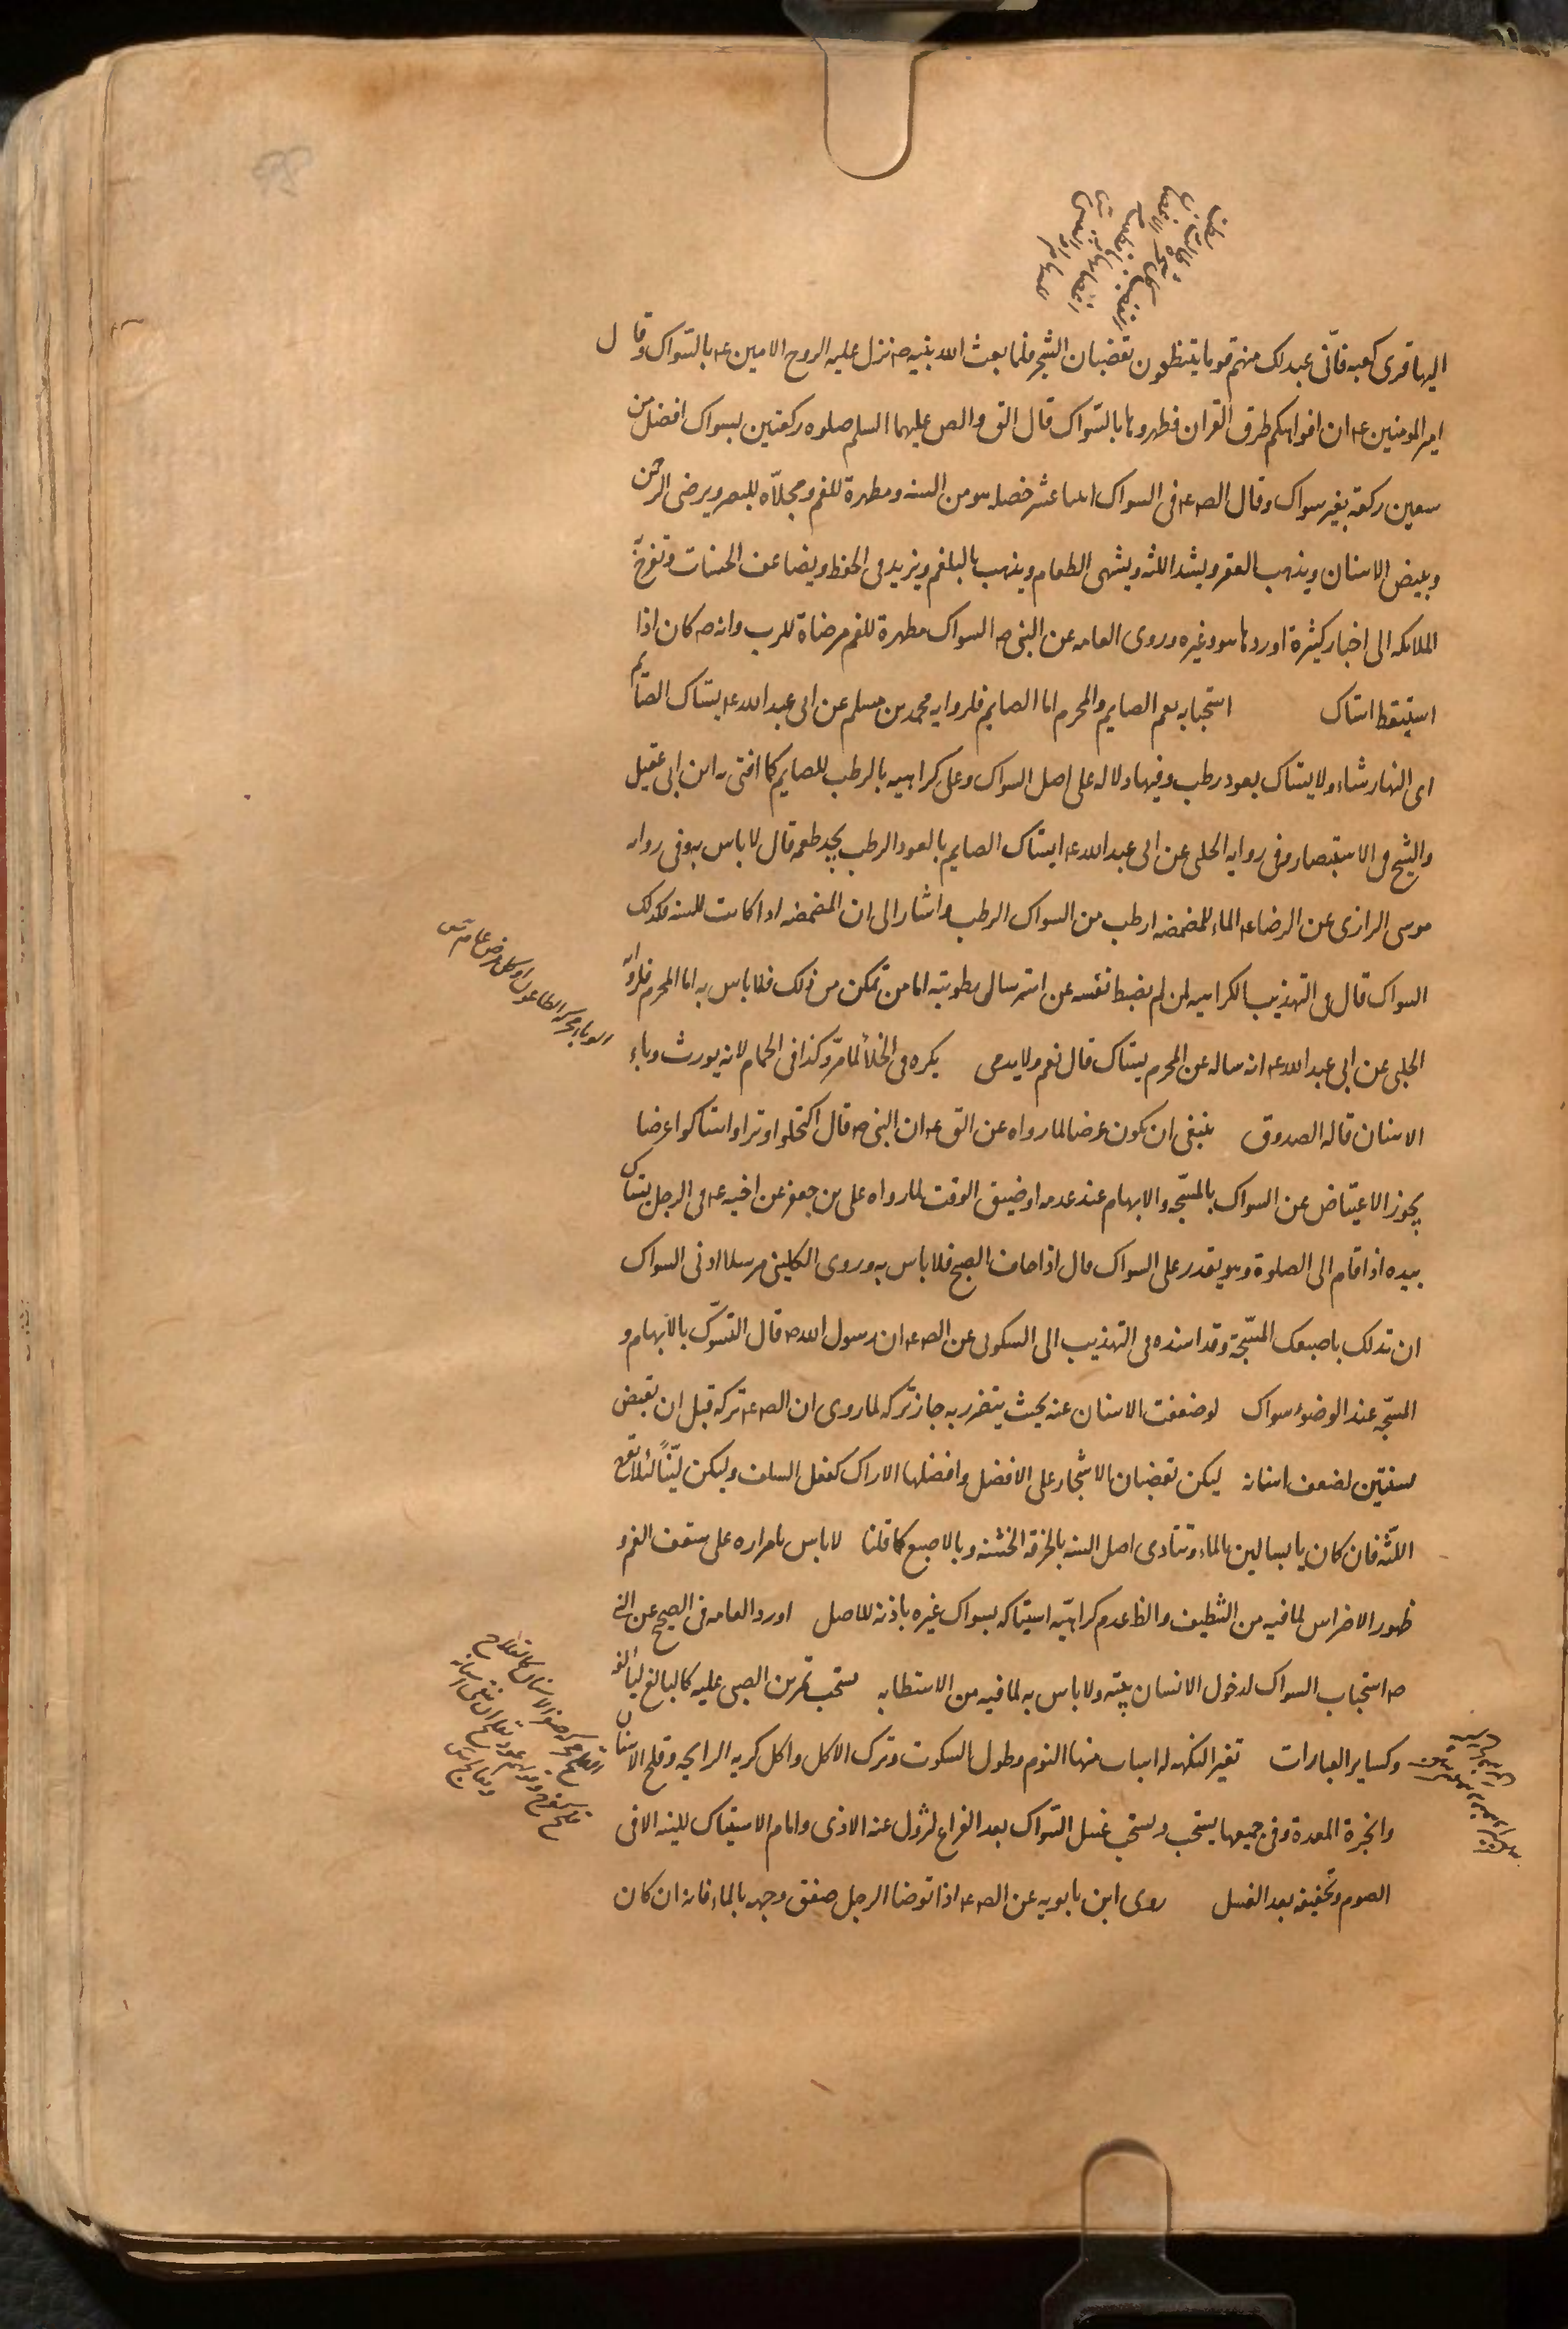 اليها قرى كعبه فانّى عبدلك منهم قوما يتنظفون بقضبان الشجر فلما بعث الله نبيه ص نزل عليه الروح الامين ع بالسواك وقال
امير المومنين ع ان افواهكم طرق القران فطهروها بالسّواك قال الق والص عليهما السلم صلوه ركعتين بسواك افضل من
سبعين ركعة بغير سواك وقال الص ع فى السواك اثنا عشر خصله هو من السنه ومطهرة للفم ومجلاّه للبصر ويرضى الرحمن
ويبيض الاسنان ويذهب بالحفر ويشد اللثه ويشهى الطعام ويذهب بالبلغم ويزيد فى الحفظ ويضاعف الحسنات وتفرح
الملائكه الى اخبار كثيرة اوردها هو وغيره وروى العامه عن النبى ص السواك مطهرة للفم مرضاة للرب وانه ص كان اذا
استيقظ استاك استحبابه يعم الصايم والمحرم اما الصايم فلروايه محمد بن مسلم عن ابى عبد الله ع يستاك الصّايم
اى النهار شاء ولا يستاك بعود رطب وفيها دلاله على اصل السواك وعلى كراهيه بالرطب للصايم كما افتى به ابن ابى عقيل
والشيخ فى الاستبصار وفى روايه الحلبى عن ابى عبد الله ع ايستاك الصايم بالعود الرطب يجد طعمه قال لا باس به وفى روايه
موسى الرازى عن الرضا ع الماء للمضمضه ارطب من السواك الرطب واشار الى ان المضمضه اذا كانت للسنه فكذلك
السواك قال فى التهذيب الكراهيه لمن لم يضبط نفسه عن استرسال رطوبته اما من تمكن من ذلك فلا باس به اما المحرم فلروايه
الحلبى عن ابى عبد الله ع انه ساله عن المحرم يستاك قال نعم ولا يدمى يكره فى الخلأ لما مرّ وكذا فى الحمام لانه يورث وباء
الاسنان قاله الصدوق ينبغى ان يكون عرضا لما رواه عن الق ع ان النبى ص قال اكتحلوا وترا واستاكوا عرضا
يجوز الاعتياض عن السواك بالمسبّحه والابهام عند عدمه او ضيق الوقت لما رواه على بن جعفر عن اخيه ع فى الرجل يستاك
بيده اذا قام الى الصلوة وهو يقدر على السواك قال اذا خاف الصبح فلا باس به وروى الكلينى مرسلا ادنى السواك
ان تدلك باصبعك المسبّحة وقد اسنده فى التهذيب الى السكونى عن الص ع ان رسول الله ص قال التسوّك بالابهام و
المسبّحه عند الوضوء سواك لو ضعفت الاسنان عنه بحيث يتضرر به جاز تركه لما روى ان الص ع تركه قبل ان يقبض
بسنتين لضعف اسنانه ليكن بقضبان الاشجار على الافضل وافضلها الاراك كفعل السلف وليكن ليّنًا لئلا تقع
اللّثه فان كان يابسا لين بالماء وتتادى اصل السنه بالخرقه الخشنه وبالاصبع كما قلنا لا باس بامراره على سقف الفم و
ظهور الاضراس لما فيه من التنظيف والظ عدم كراهيّه استياكه بسواك غيره باذنه للاصل اورد العامه فى الصحيح عن النبى
ص استحباب السواك لدخول الانسان بيته ولا باس به لما فيه من الاستطابه يستحب تمرين الصبى عليه كالبالغ ليالفه
وكساير العبادات تغير النكهه له اسباب منها النوم وطول السكوت وترك الاكل واكل كريه الرايحه وقلح الاسنان
وابخرة المعدة وفى جميعها يستحب ويستحب غسل السّواك بعد الفراغ لتزول عنه الاذى وامام الاستياك للينه الا فى
الصوم وتخفيفه بعد الغسل روى ابن بابويه عن الص ع اذا توضا الرجل صفق وجهه بالماء فانه ان كان
الوباء محركه الطاعون او كل مرض عام